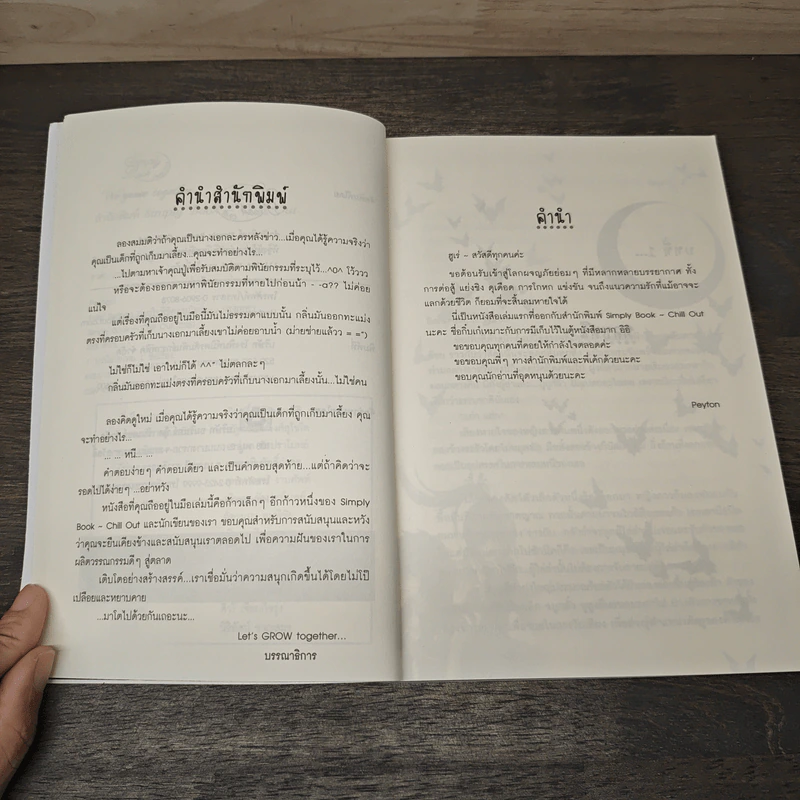 คำนำสำนักพิมพ์
ลองสมมติว่าถ้าคุณเป็นนางเอกละครหลังข่าว...เมื่อคุณได้รู้ความจริงว่า
คุณเป็นเด็กที่ถูกเก็บมาเลี้ยง...คุณจะทำอย่างไร...
...ไปตามหาเจ้าคุณปู่เพื่อรับสมบัติตามพินัยกรรมที่ระบุไว้...^O^ โว้ววว
หรือจะต้องออกตามหาพินัยกรรมที่หายไปก่อนน้า - -a?? ไม่ค่อย
แน่ใจ
แต่เรื่องที่คุณถืออยู่ในมือนี้มันไม่ธรรมดาแบบนั้น กลิ่นมันออกทะแม่ง
ตรงที่ครอบครัวที่เก็บนางเอกมาเลี้ยงเขาไม่ค่อยอาบน้ำ (ม่ายช่ายแล้วว = =")
ไม่ใช่ก็ไม่ใช่ เอาใหม่ก็ได้ ^^" ไม่ตลกละๆ
กลิ่นมันออกทะแม่งตรงที่ครอบครัวที่เก็บนางเอกมาเลี้ยงนั้น...ไม่ใช่คน
ลองคิดดูใหม่ เมื่อคุณได้รู้ความจริงว่าคุณเป็นเด็กที่ถูกเก็บมาเลี้ยง คุณ
จะทำอย่างไร...
... ... หนี... ...
คำตอบง่ายๆ คำตอบเดียว และเป็นคำตอบสุดท้าย...แต่ถ้าคิดว่าจะ
รอดไปได้ง่ายๆ ...อย่าหวัง
หนังสือที่คุณถืออยู่ในมือเล่มนี้คือก้าวเล็กๆ อีกก้าวหนึ่งของ Simply
Book – Chill Out และนักเขียนของเรา ขอบคุณสำหรับการสนับสนุนและหวัง
ว่าคุณจะยืนเคียงข้างและสนับสนุนเราตลอดไป เพื่อความฝันของเราในการ
ผลิตวรรณกรรมดีๆ สู่ตลาด
เติบโตอย่างสร้างสรรค์...เราเชื่อมั่นว่าความสนุกเกิดขึ้นได้โดยไม่โป๊
เปลือยและหยาบคาย
...มาโตไปด้วยกันเถอะนะ...
Let's GROW together...
บรรณาธิการ
คำนำ
ฮูเร่ – สวัสดีทุกคนค่ะ
ขอต้อนรับเข้าสู่โลกผจญภัยย่อมๆ ที่มีหลากหลายบรรยากาศ ทั้ง
การต่อสู้ แย่งชิง ดุเดือด การโกหก แข่งขัน จนถึงแนวความรักที่แม้อาจจะ
แลกด้วยชีวิต ก็ยอมที่จะสิ้นลมหายใจได้
นี่เป็นหนังสือเล่มแรกที่ออกกับสำนักพิมพ์ Simply Book – Chill Out
นะคะ ชื่อกิ๊บเก๋เหมาะกับการมีเก็บไว้ในตู้หนังสือมาก อิอิ
ขอขอบคุณทุกคนที่คอยให้กำลังใจตลอดค่ะ
ขอขอบคุณพี่ๆ ทางสำนักพิมพ์และพี่เค้กด้วยนะคะ
ขอบคุณนักอ่านที่อุดหนุนด้วยนะคะ
Peyton